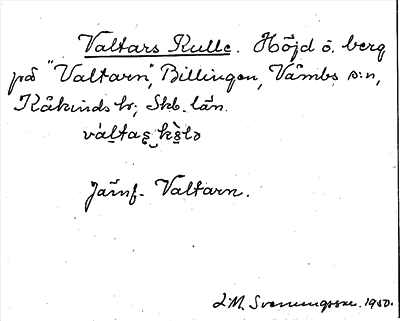 Valtars Kulle. Höjd ö. berg
på "Valtarn", Billingen, Våmbs s:n,
Kåkinds hr; Skb. län.
váltaʂ kɵ̀lə
Jämf. Valtarn.
1950.